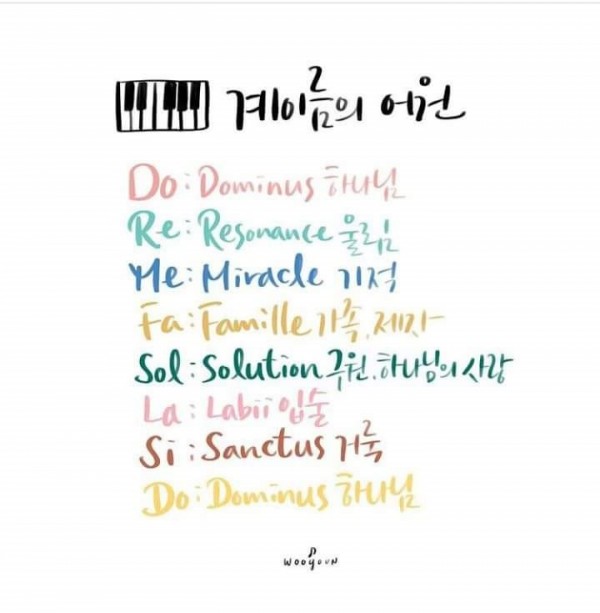 계이름의 어원
Do : Dominus 하나님
Re : Resonance 울림
Me : Miracle 기적
Fa : Famille 가족, 제자
Sol : Solution 구원, 하나님의 사랑
La : Labii 입술
Si : Sanctus 거룩
Do : Dominus 하나님
WOOYOUN